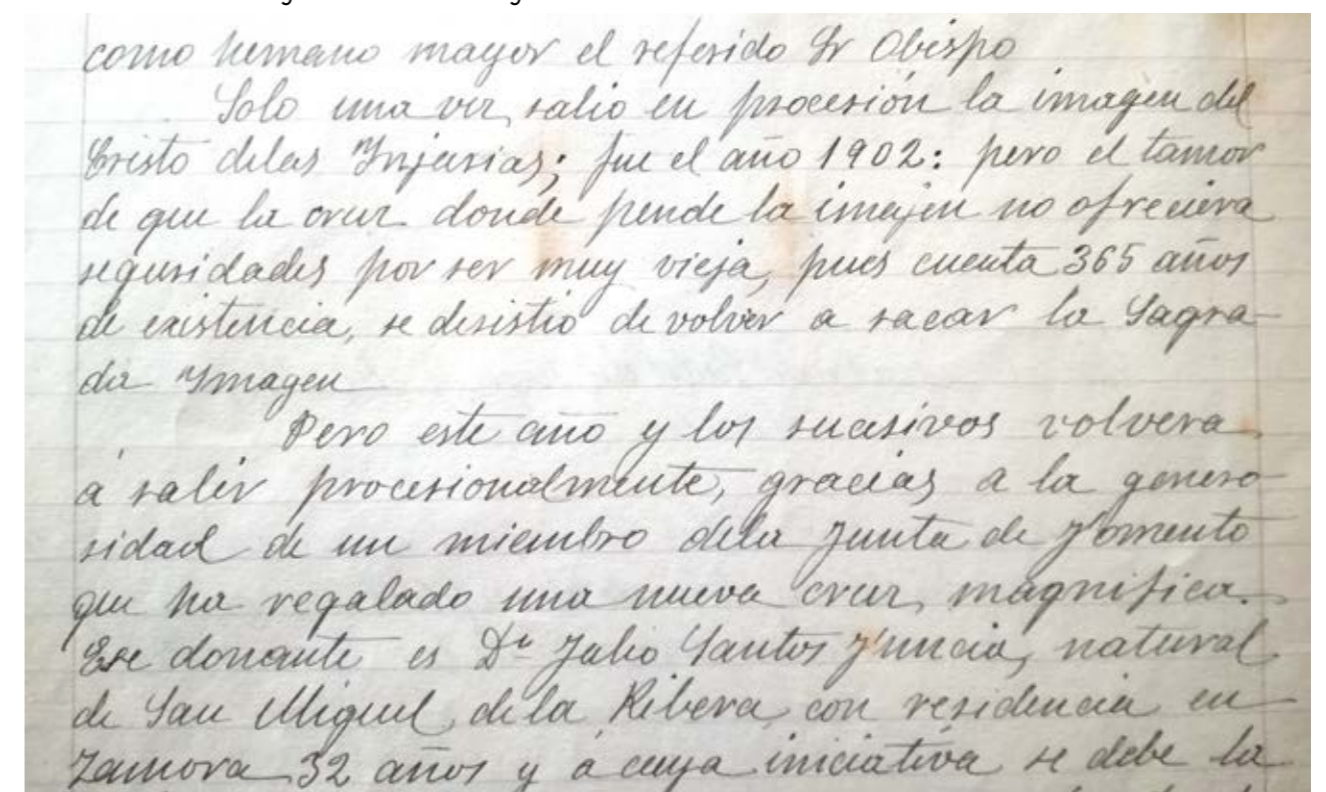 como hemano mayor el referido Sr Obispo
Solo una vez, salio en procesión la imagen del
Cristo delas Ynjurias; fue el año 1902: pero el tamor
de que la cruz donde pende la imajen no ofreciera
seguridades por ser muy vieja, pues cuenta 365 años
de existencia, se desistio de volver a sacar la Sagra-
da Ymagen
Pero este año y los sucesivos volvera
á salir procesionalmente, gracias a la genero-
sidad de un miembro dela Junta de Fomento
que ha regalado una nueva cruz, magnifica.
Ese donante es Dn Julio Santos Funcia, natural
de San Miguel dela Ribera, con residencia en
Zamora 32 años y á cuya iniciativa se debe la